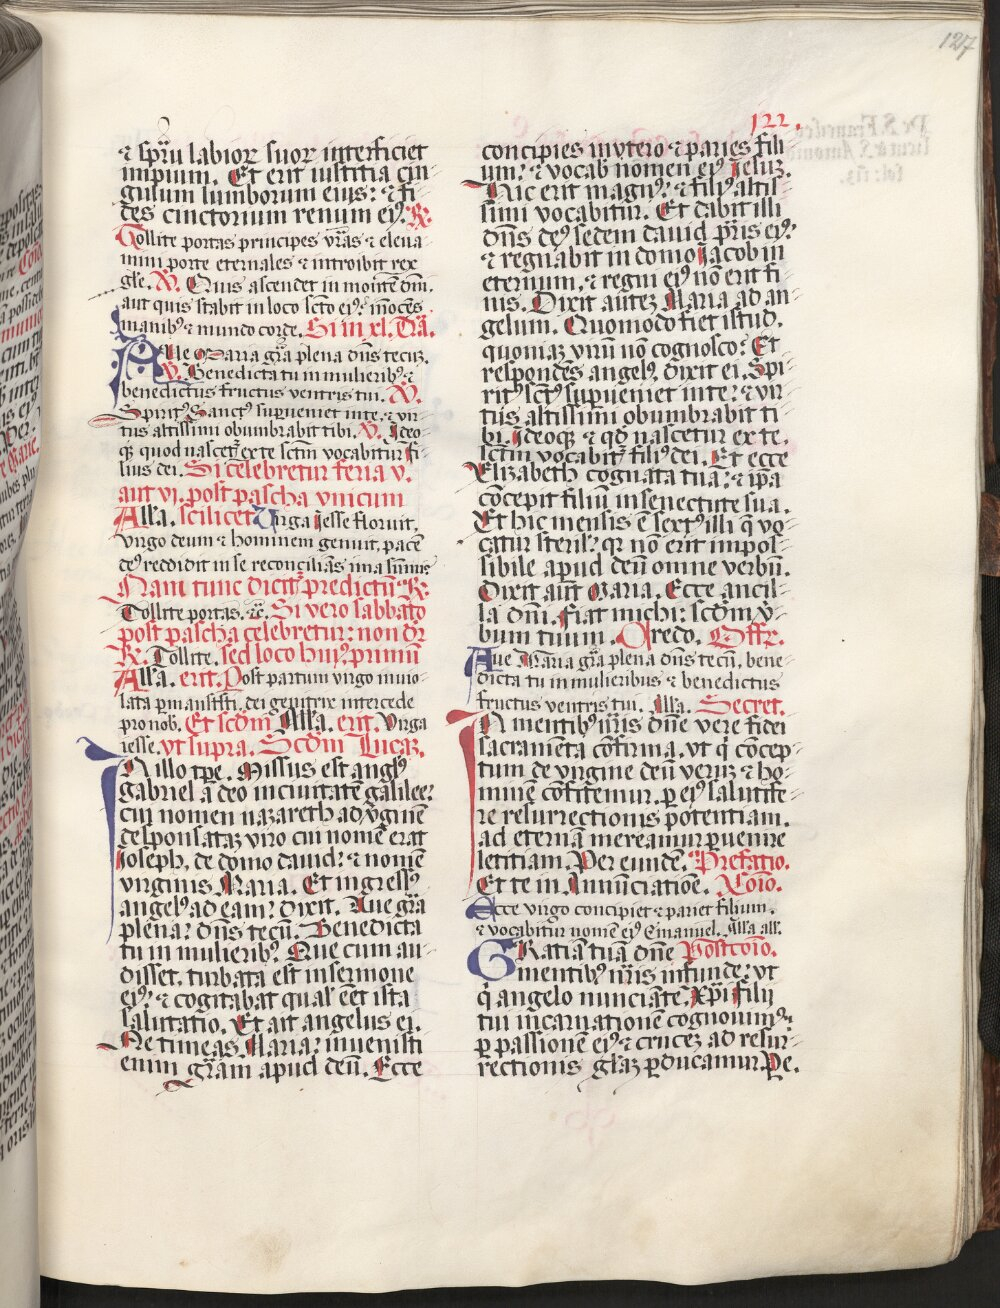 127
122.
⁊ spũ labioꝝ suoꝝ interficiet
impium. Et erit iustitia cin
gulum lumborum eius: ⁊ fi
des cinctorium renum eiꝰ. ℟.
Tollite portas principes vr̃as ⁊ eleua
mini porte eternales ⁊ introibit rex
gl̃e. ℣. Quis ascendet in montẽ dñi.
aut quis stabit in loco sc̃to eiꝰ: inocẽs
manibꝰ ⁊ mundo corde. Si in xl. Tra.
Aue Maria gr̃a plena dñs tecũ.
℣. Benedicta tu in mulieribꝰ ⁊
benedictus fructus ventris tui. ℣.
Spiritꝰ Sanctꝰ supueniet in te. ⁊ vir
tus altissimi obumbrabit tibi. ℣. Ideo
qꝫ quod nascet̃ ex te sc̃tm vocabitur fi
lius dei. Si celebretur feria v.
aut vi. post pascha vnicum
All'a. scilicet Virga Iesse floruit.
virgo deum ⁊ hominem genuit. pacẽ
deꝰ reddidit in se reconciliãs ima sũmis
Nam tunc dicit̃ predictũ ℟.
Tollite portas. ⁊c̃. Si vero sabbato
post pascha celebretur: non dr̃
℟. Tollite. sed loco huiꝰ primũ
All'a. erit. Post partum virgo inuio
lata pmansisti. dei genitrix intercede
pro nob. Et sc̃dm All'a. erit. Virga
iesse. vt supra. Sc̃dm Lucaꝫ.
IN illo tp̃e. Missus est anglꝰ
gabriel a deo in ciuitatẽ galilee:
cui nomen nazareth ad v̓ginẽ
desponsataꝫ viro cui nomẽ erat
Ioseph. de domo dauid: ⁊ nomẽ
virginis Maria. Et ingressꝰ
angelꝰ ad eam: dixit. Aue gr̃a
plena: dñs tecũ. Benedicta
tu in mulieribꝰ. Que cum au
disset. turbata est in sermone
eiꝰ: ⁊ cogitabat qual' eẽt ista
salutatio. Et ait angelus ei.
Ne timeas Maria: inuenisti
enim gr̃am apud deũ. Ecce
concipies in vtero ⁊ paries fili
um: ⁊ vocab̃ nomen eiꝰ Iesuꝫ.
Hic erit magnꝰ: ⁊ filiꝰ altis
simi vocabitur. Et dabit illi
dñs deꝰ sedem dauid pr̃is eiꝰ:
⁊ regnabit in domo Iacob in
eternum. ⁊ regni eiꝰ nõ erit fi
nis. Dixit auteꝫ Maria ad an
gelum. Quomodo fiet istud.
quoniaꝫ virũ nõ cognosco: Et
respondẽs angelꝰ dixit ei. Spi
ritꝰ sc̃tꝰ supueniet in te: ⁊ vir
tus altissimi obumbrabit ti
bi. Ideoqꝫ ⁊ qd̃ nascetur ex te.
sc̃tm vocabit̃ filiꝰ dei. Et ecce
Elizabeth cognata tua: ⁊ ip̃a
cõcepit filiũ in senectute sua.
Et hic mensis ẽ sextꝰ illi q̃ vo
catur steril': qꝛ nõ erit impos
sibile apud deũ omne verbũ.
Dixit aũt Maria. Ecce ancil
la dñi. Fiat michi: sc̃dm v̓
bum tuum. Credo. Offr̃.
Aue Maria gr̃a plena dñs tecũ. bene
dicta tu in mulieribus ⁊ benedictus
fructus ventris tui. All'a. Secret.
IN mentibꝰ nr̃is dñe vere fidei
sacramẽta cõfirma. vt q̃ cõcep
tum de virgine deũ veruꝫ ⁊ ho
minẽ cõfitemur. p eiꝰ salutife
re resurrectionis potentiam.
ad eternã mereamur puenire
letitiam. Per eundẽ. Prefatio.
Et te in Annũciatiõe. Cõio.
Ecce virgo concipiet ⁊ pariet filium.
⁊ vocabitur nomẽ eiꝰ Emanuel. All'a all'.
GRatiã tuã dñe Postcõio.
mentibꝰ nr̃is infunde: vt
q̃ angelo nunciãte. Xp̃i filij
tui incarnationẽ cognouimꝰ:
p passionẽ eiꝰ ⁊ cruceꝫ ad resur
rectionis gl̃aꝫ pducamur. Pe.